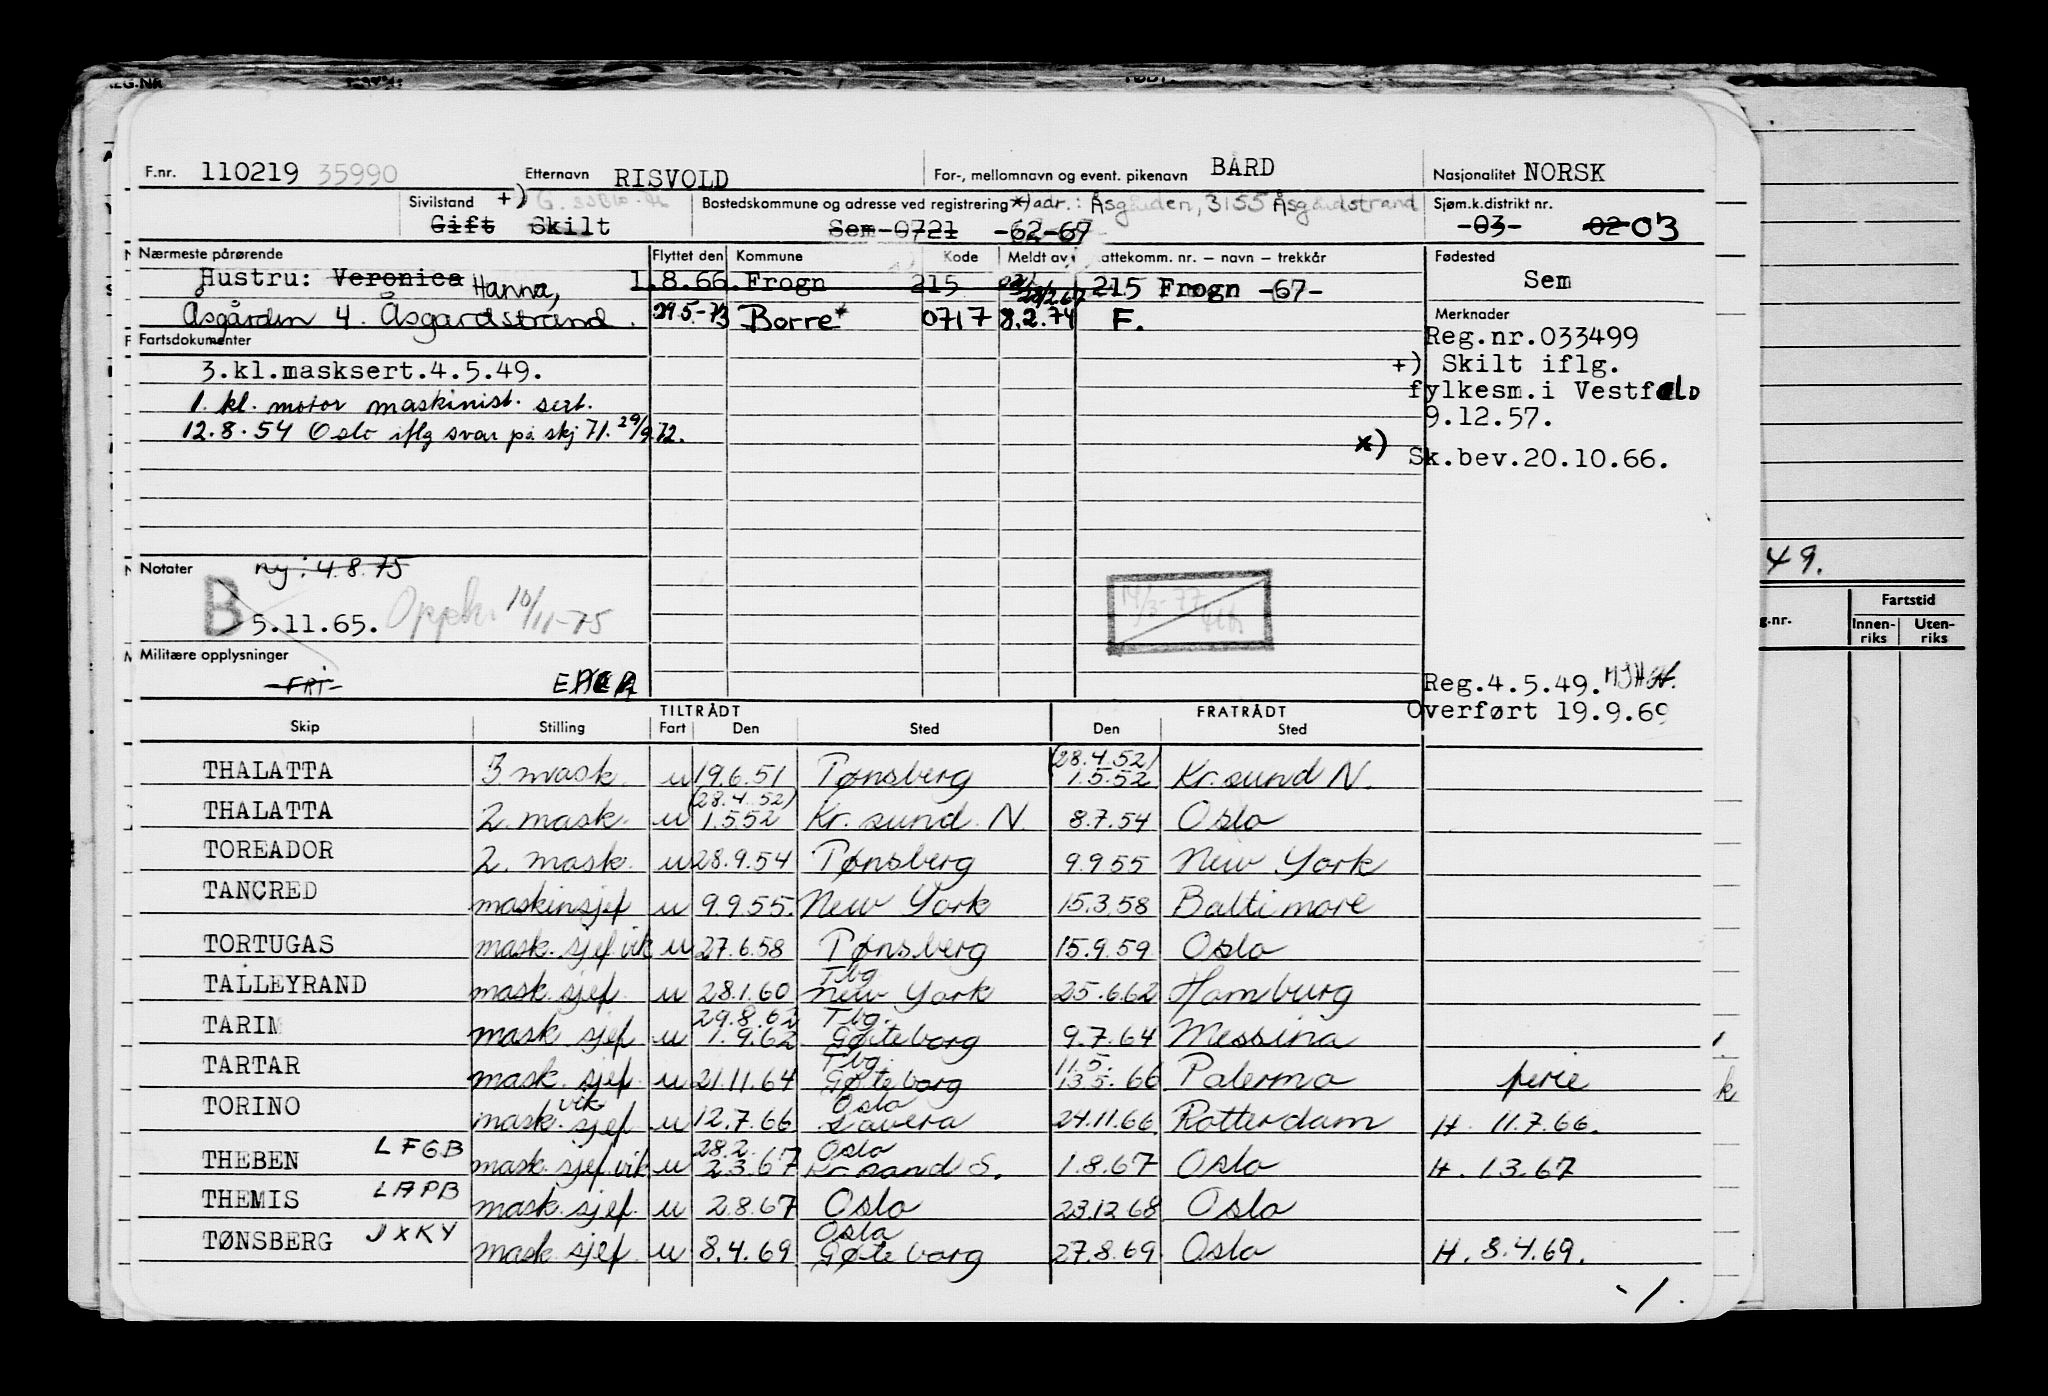 F.nr. 110219 35990 Etternavn RISVOLD For-, mellomnavn og event. pikenavn BÅRD Nasjonalitet NORSK
Sivilstand +) Bostedskommune og adresse ved registrering *) adr.: Åsgården, 3155 Åsgårdstrand Sjøm.k.distrikt nr.
Gift Skilt Sem-0721 -62-67 -03- 02 03
Nærmeste pårørende Flyttet den Kommune Kode Meldt av Skattekomm. nr. – navn – trekkår Fødested
Hustru: Veronica Hanna, 1.8.66. Frogn 215 215 Frogn -67- Sem
Åsgården 4. Åsgardstrand. 29.5-73 Borre* 0717 8.2.74 F. Merknader
Fartsdokumenter Reg.nr.033499
3.kl.masksert.4.5.49. +) Skilt iflg.
1. kl. motor maskinist. sert. fylkesm.i Vestfold
12.8.54 Oslo iflg svar på skj 71. 29/9.72. 9.12.57.
x) Sk.bev.20.10.66.
Notater ny: 4.8.75
B 5.11.65. Opph. 10/11-75 14/3-77
Militære opplysninger
-FRI- Reg.4.5.49.
TILTRÅDT FRATRÅDT Overført 19.9.69
Skip Stilling Fart Den Sted Den Sted
THALATTA 3 mask. u 19.6.51 Tønsberg (28.4.52) 1.5.52 Kr.sund N.
THALATTA 2. mask. u (28.4.52) 1.5.52 Kr. sund. N. 8.7.54 Oslo
TOREADOR 2. mask. u 28.9.54 Tønsberg 9.9.55 New York
TANCRED maskinsjef u 9.9.55. New York 15.3.58 Baltimore
TORTUGAS mask. sjef vik u 27.6.58 Tønsberg 15.9.59 Oslo
TALLEYRAND mask. sjef. u 28.1.60 Tbg New York 25.6.62 Hamburg
TARIM mask. sjef u 29.8.62 1.9.62 Tbg. Gøteborg 9.7.64 Messina
TARTAR mask. sjef. u 21.11.64 Tbg. Gøteborg 11.5. 13.5.66 Palermo ferie
TORINO mask. vik. sjef u 12.7.66 Oslo Savera 24.11.66. Rotterdam H. 11.7.66.
THEBEN LFGB mask. sjef. vik. u 28.2. 2.3.67 Oslo Kr.sand S. 1.8.67 Oslo H. 1.3.67
THEMIS LAPB mask. sjef. u 2.8.67 Oslo 23.12.68 Oslo
TØNSBERG JXKY mask. sjef. u 8.4.69 Oslo Gøteborg 27.8.69. Oslo H. 8.4.69.
-1.
49.
Fartstid
g.nr. Innen- Uten-
riks riks
k